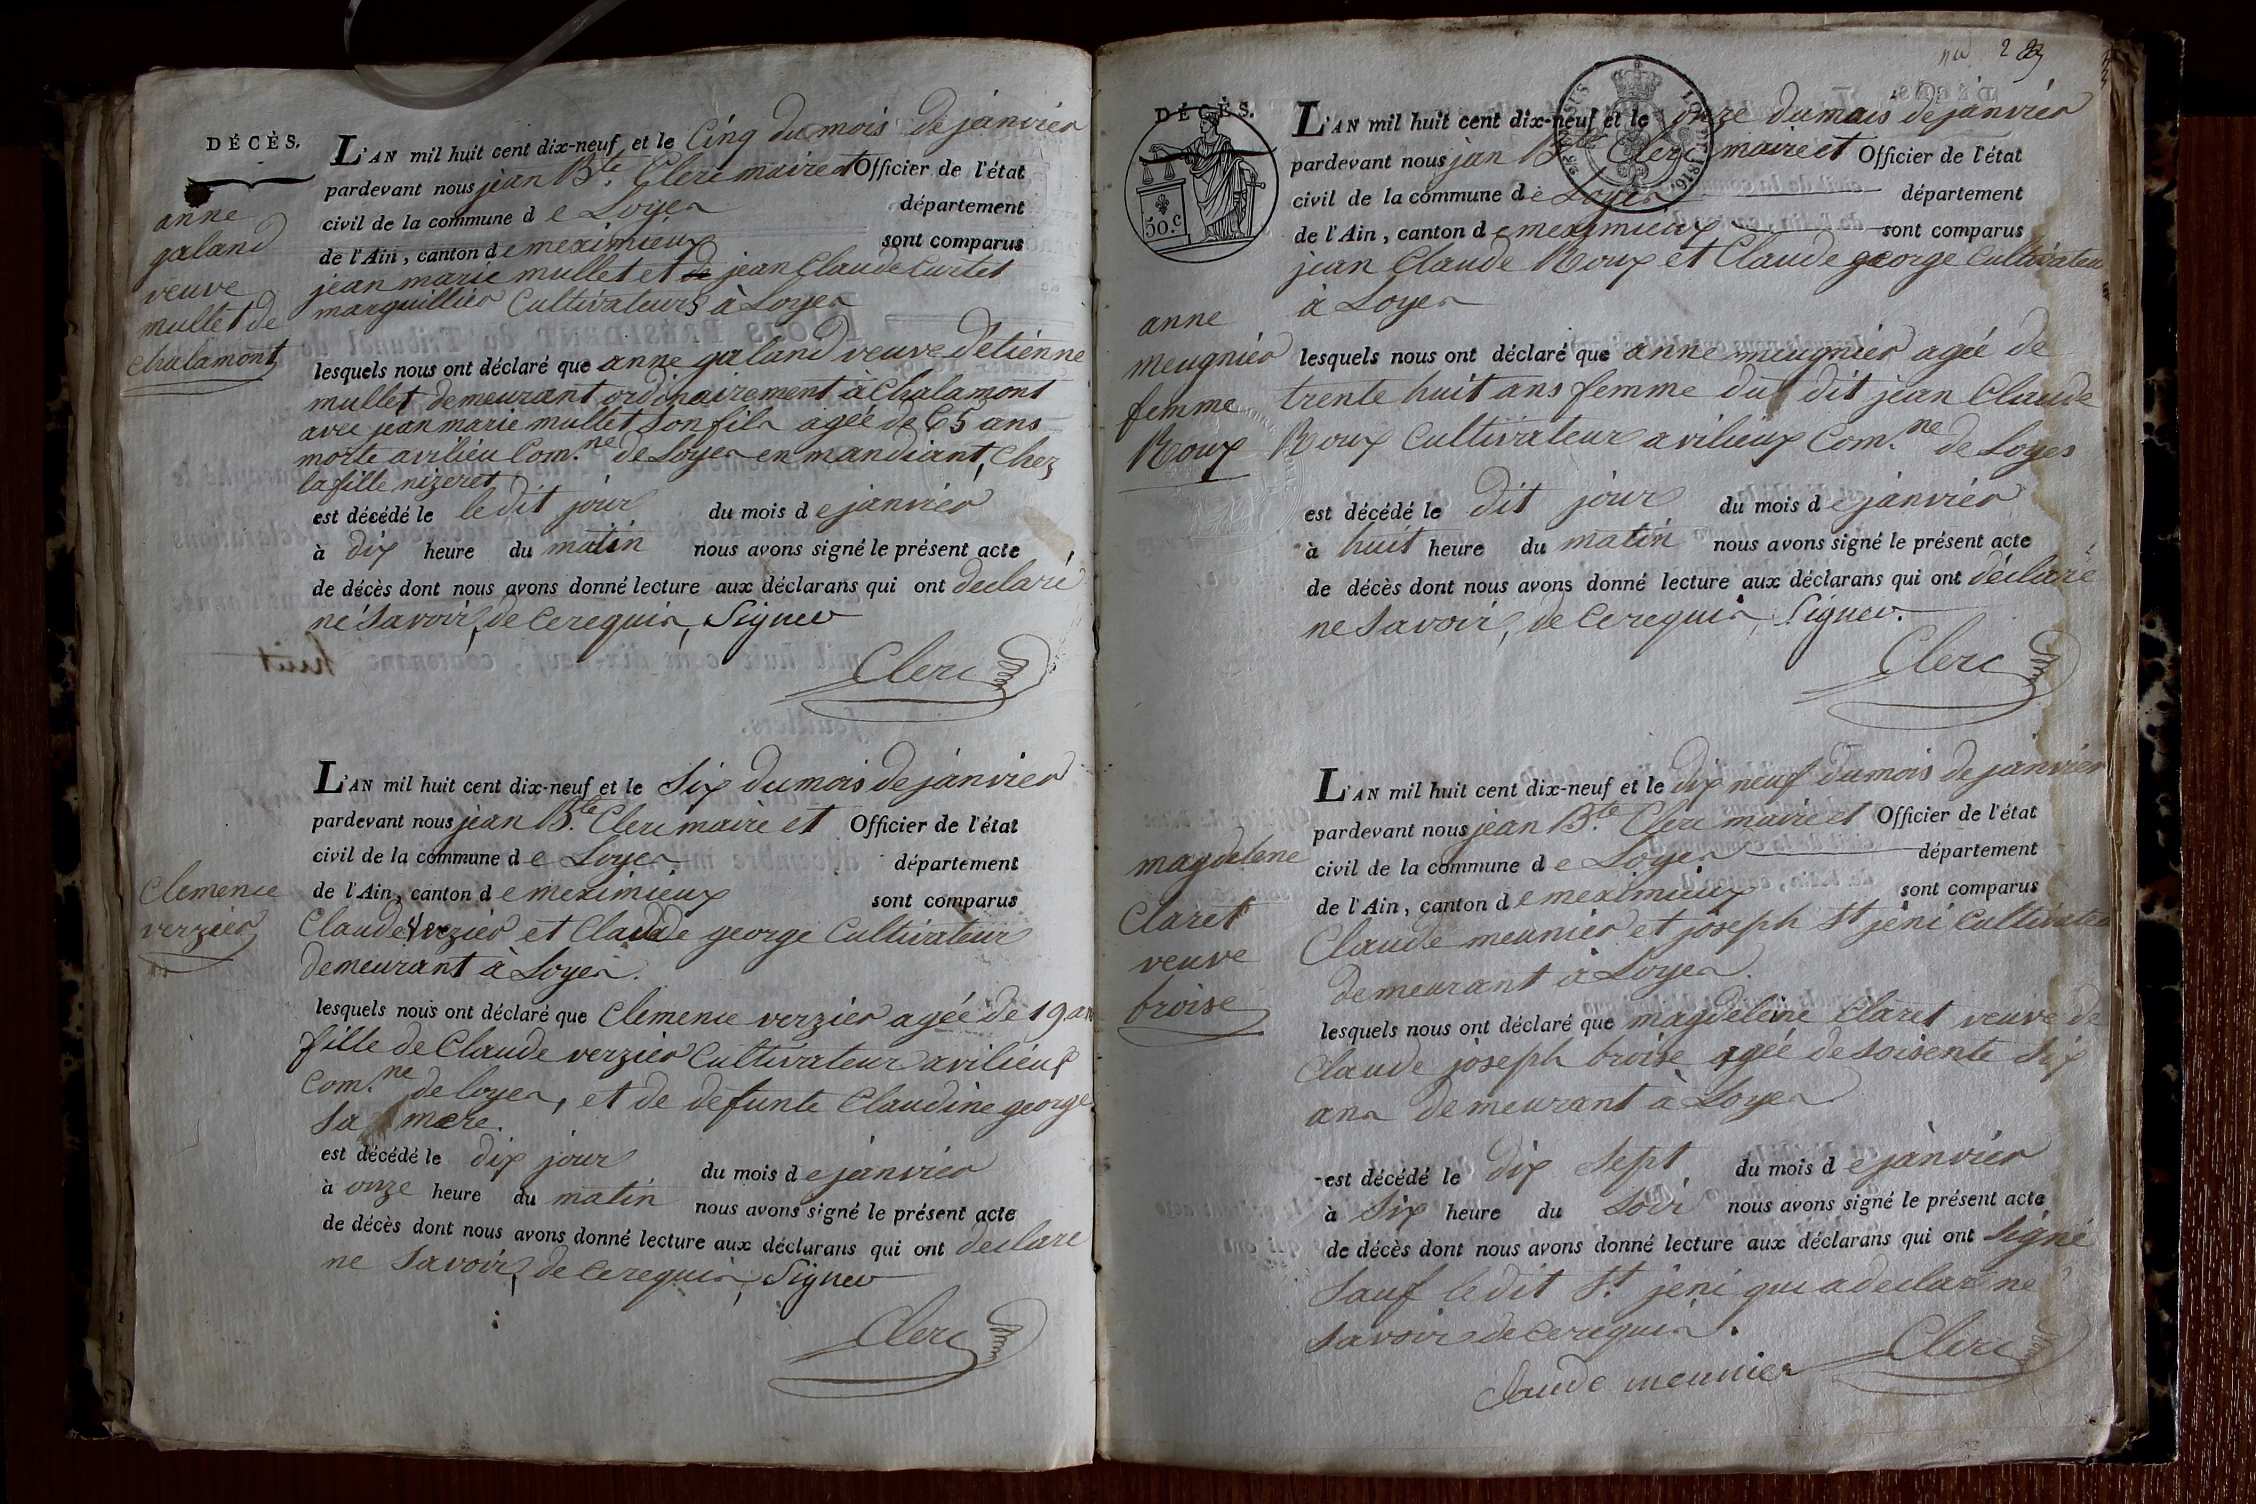 DÉCÈS.
anne
galand
veuve
mullet de
chalamont
L'AN mil huit cent dix-neuf et le Cinq du mois de janvier
pardevant nous jean Bte. Clerc maire et Officier de l'état
civil de la commune de Loyes département
de l'Ain, canton de meximieux sont comparus
jean marie mullet et de jean Claude Curtet
marguillier Cultivateurs à Loyes
lesquels nous ont déclaré que anne galand veuve d'étiénne
mullet demeurant ordinairement à Chalamont
avec jean marie mullet son fils agée de 65 ans
morte a viliéu Com.ne de Loyes en mandiant, chez
la fille nizeret
est décédé le le dit jour du mois de janvier
à dix heure du matin nous avons signé le présent acte
de décès dont nous avons donné lecture aux déclarans qui ont declaré
né savoir, de ce requis, Signer
Clerc
Clemence
verzier
L'AN mil huit cent dix-neuf et le Six du mois de janvier
pardevant nous jean Bte. Clerc maire et Officier de l'état
civil de la commune de Loyes département
de l'Ain, canton de meximieux sont comparus
Claude verzier et Claude george Cultivateur
demeurant à Loyes.
lesquels nous ont déclaré que Clemence verzier agéé de 19 ans
fille de Claude verzier Cultivateur a viliéux
Com.ne de loyes, et de défunte Claudine george
sa mere.
est décédé le dix jour du mois de janvier
à onze heure du matin nous avons signé le présent acte
de décès dont nous avons donné lecture aux déclarans qui ont declare
ne savoir, de ce requis, Signer
Clerc
283
DÉCÈS.
50.c
anne
meugnier
femme
Roux
L'AN mil huit cent dix-neuf et le onze du mois de janvier
pardevant nous jan Bte Clerc maire et Officier de l'état
civil de la commune de Loyes département
de l'Ain, canton de meximieux sont comparus
jean Claude Roux et Claude george Cultivateu
à Loyes
lesquels nous ont déclaré que anne meugnier agéé de
trente huit ans femme du dit jean Claude
Roux Cultivateur a vilieux Com.ne de Loyes
est décédé le dit jour du mois de janvier
à huit heure du matin nous avons signé le présent acte
de décès dont nous avons donné lecture aux déclarans qui ont déclaré
ne savoir, de ce requis, Signer.
Clerc
magdelene
Claret
veuve
broise
L'AN mil huit cent dix-neuf et le dix neuf du mois de janvier
pardevant nous jean Bte. Clerc maire et Officier de l'état
civil de la commune de Loyes département
de l'Ain, canton de meximieux sont comparus
Claude meunier et joseph St jéni Cultivateu
demeurant à Loyes.
lesquels nous ont déclaré que magdeleine Claret veuve de
Claude joseph broise agéé de soisente six
ans demeurant à Loyes
est décédé le dix sept du mois de janvier
à six heure du soir nous avons signé le présent acte
de décès dont nous avons donné lecture aux déclarans qui ont signé
sauf le dit St. jeni qui a declaré ne
savoir de ce requis.
Claude meunier Clerc